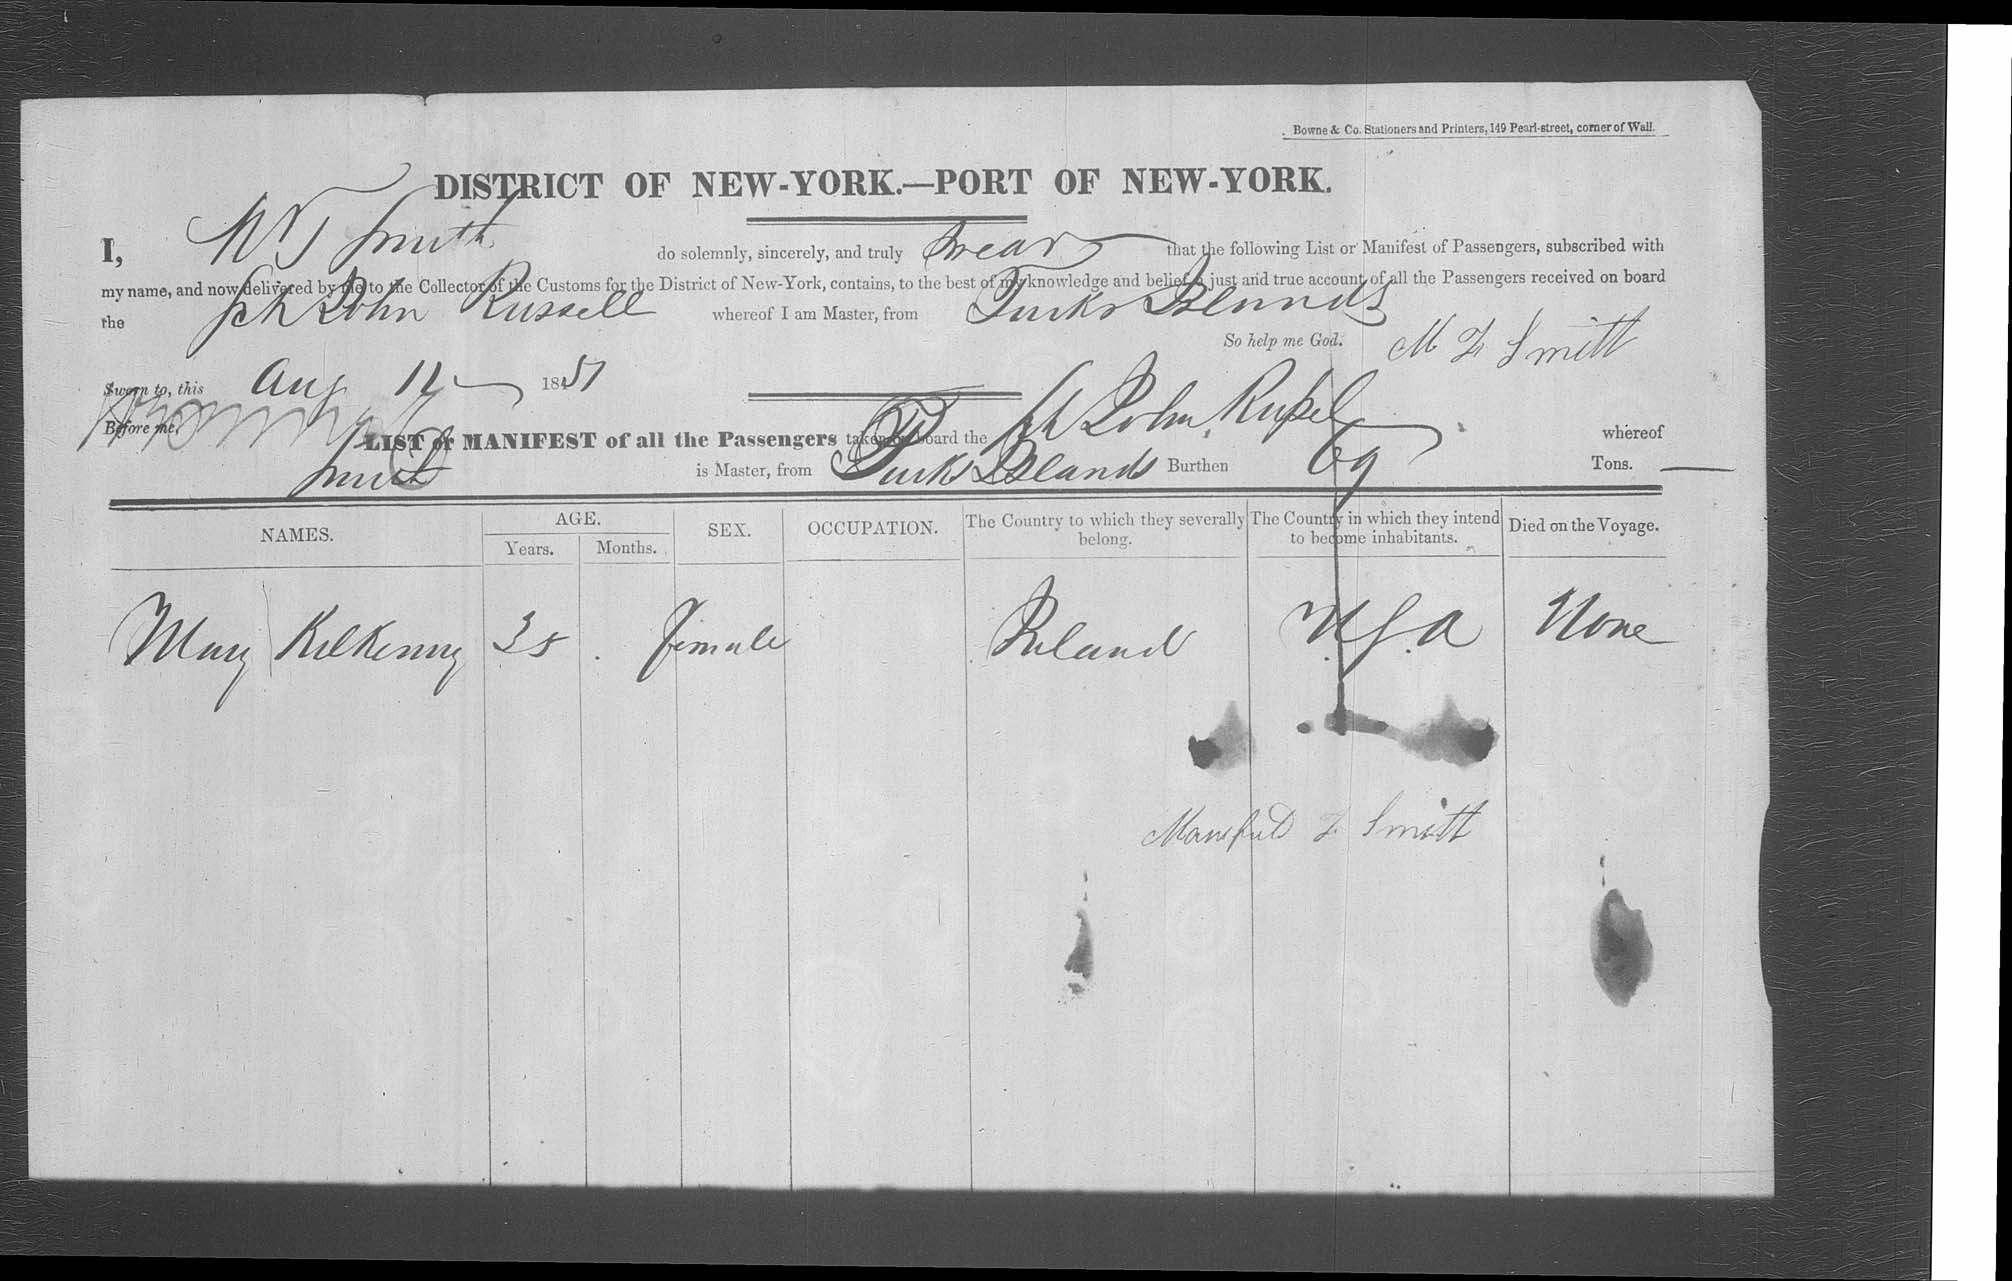 Bowne & Co. Stationers and Printers, 149 Pearl-street, corner of Wall.
DISTRICT OF NEW-YORK.—PORT OF NEW-YORK.
I, Smith do solemnly, sincerely, and truly swear that the following List or Manifest of Passengers, subscribed with
my name, and now delivered by me to the Collector of the Customs for the District of New-York, contains, to the best of my knowledge and belief, a just and true account of all the Passengers received on board
the Sch John Russell whereof I am Master, from Turks Islands
So help me God. M F Smith
Sworn to, this Aug 12 1851
Before me,
LIST or MANIFEST of all the Passengers taken on board the Sch John Russel whereof
Smith is Master, from Turks Islands Burthen 69 Tons.
NAMES. AGE. SEX. OCCUPATION. The Country to which they severally belong. The Country in which they intend to become inhabitants. Died on the Voyage.
Years. Months.
Mary Kilkenny female Ireland U.S.A None
F Smith